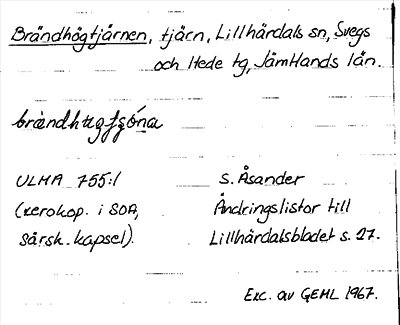 Brändhögtjärnen, tjärn, Lillhärdals sn, Svegs
och Hede tg, Jämtlands län.
brændhugfȿóna
ULMA 755:1
S. Åsander
(xerokop. i SOA,
Ändringslistor till
särsk. kapsel).
Lillhärdalsbladet s. 27.
Exc. av GEHL 1967.